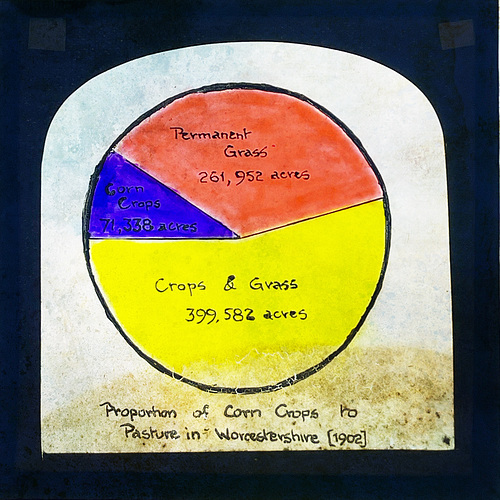 Permanent
Grass
261,952 acres
Corn
Crops
71,338 acres
Crops & Grass
399,582 acres
Proportion of Corn Crops to
Pasture in Worcestershire [1902]